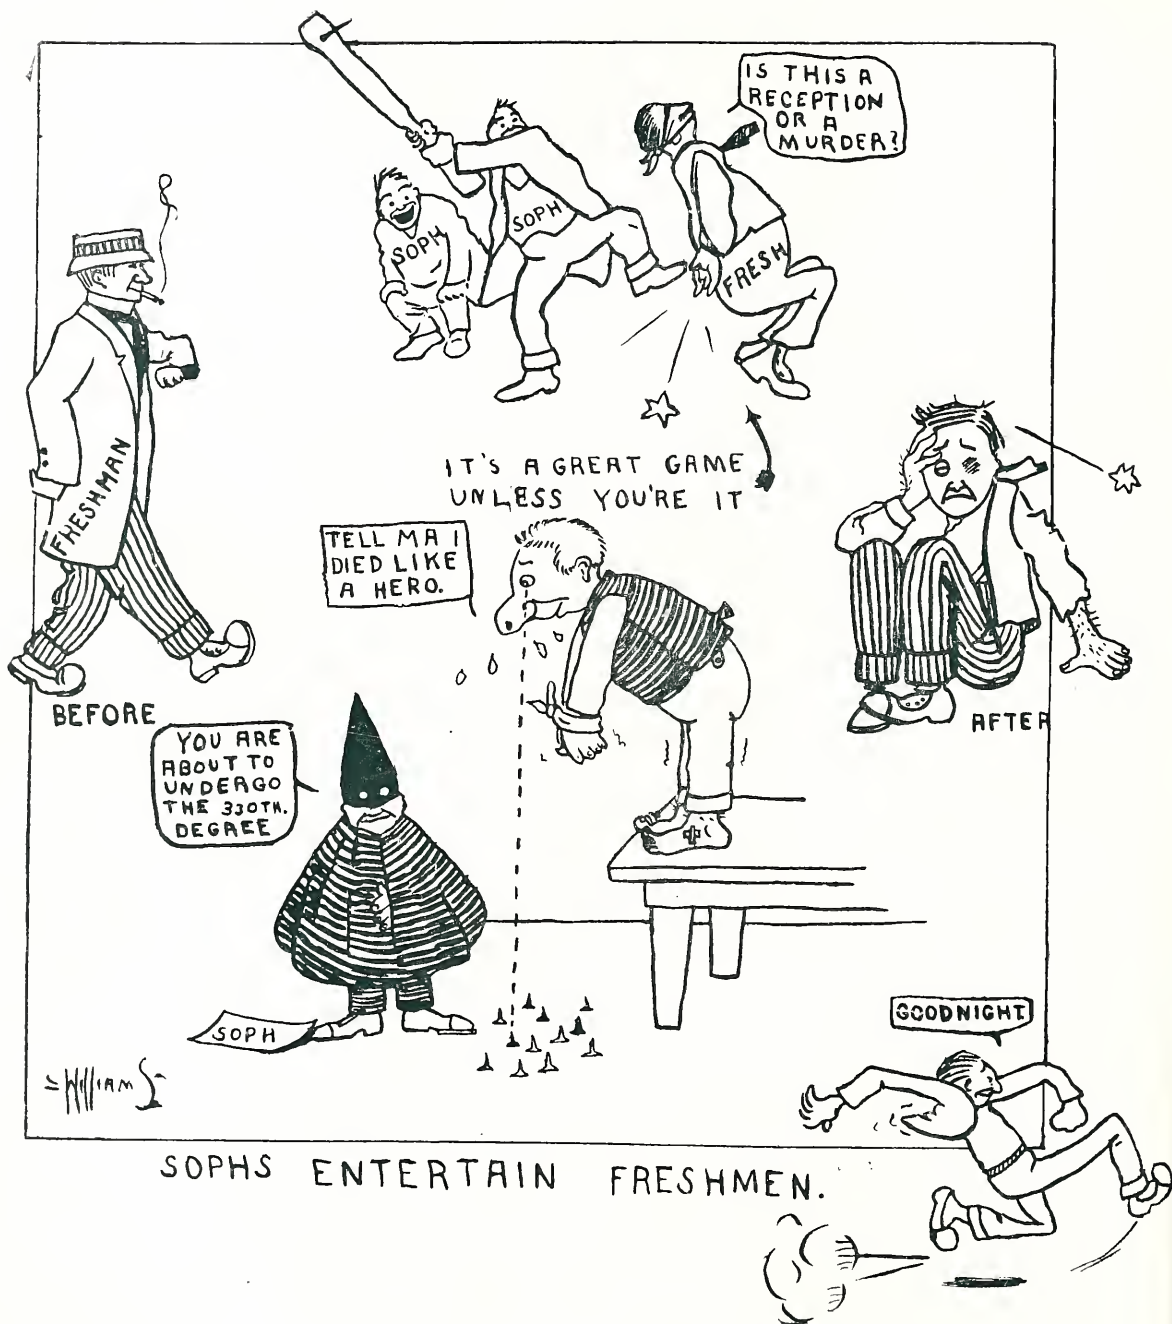 IS THIS A
RECEPTION
OR A
MURDER?
SOPH
SOPH
FRESH
FHESHMAN
IT'S A GREAT GAME
UNLESS YOU'RE IT
TELL MA I
DIED LIKE
A HERO.
BEFORE
AFTER
YOU ARE
ABOUT TO
UNDERGO
THE 330TH.
DEGREE
SOPH
GOODNIGHT
WILLIAMS
SOPHS ENTERTAIN FRESHMEN.